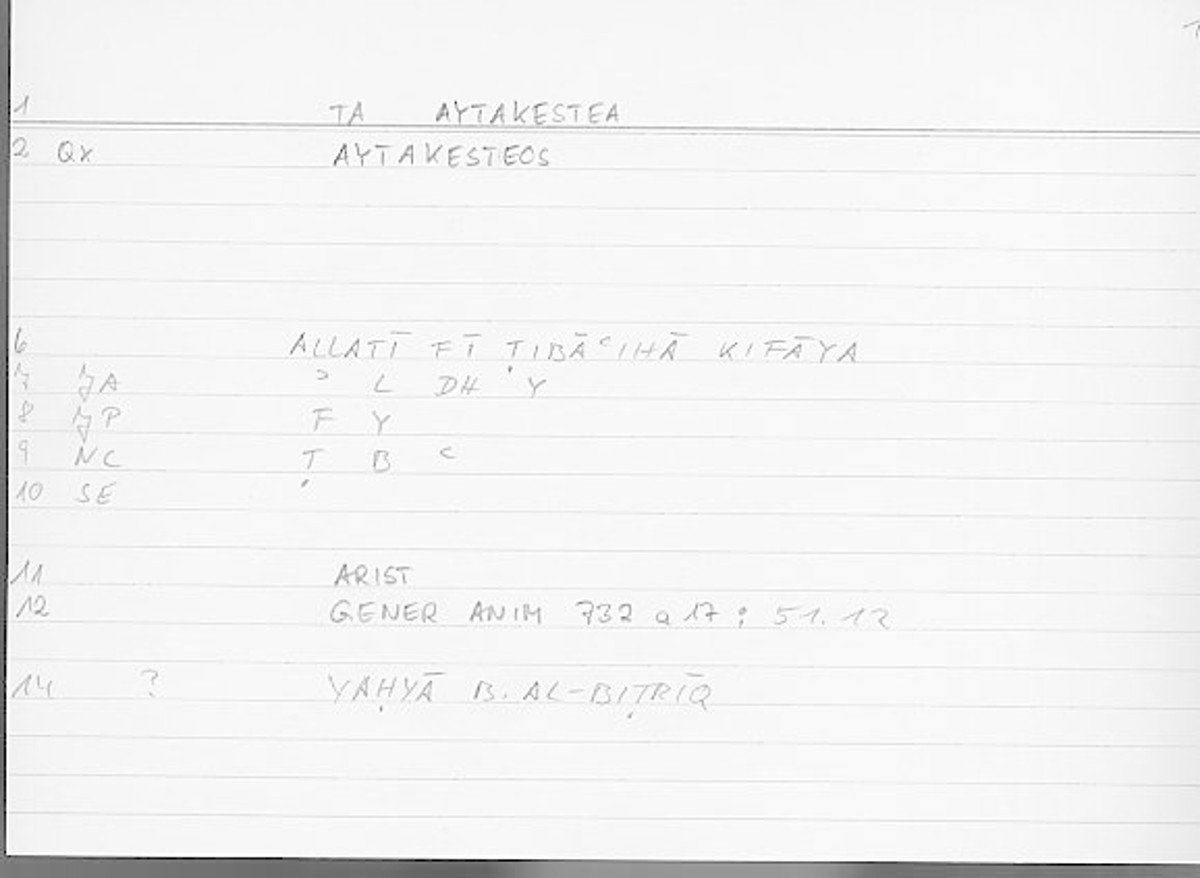 1
1 TA AYTAKESTEA
2 Qx AYTAKESTEOS
6 ALLATĪ FĪ ṬIBĀʿIHĀ KIFĀYA
7 JA ʾ L DH Y
8 JP F Y
9 NC Ṭ B ʿ
10 SE
11 ARIST
12 GENER ANIM 732 a 17 ; 51.12
14 ? YAḤYĀ B. AL-BIṬRĪQ